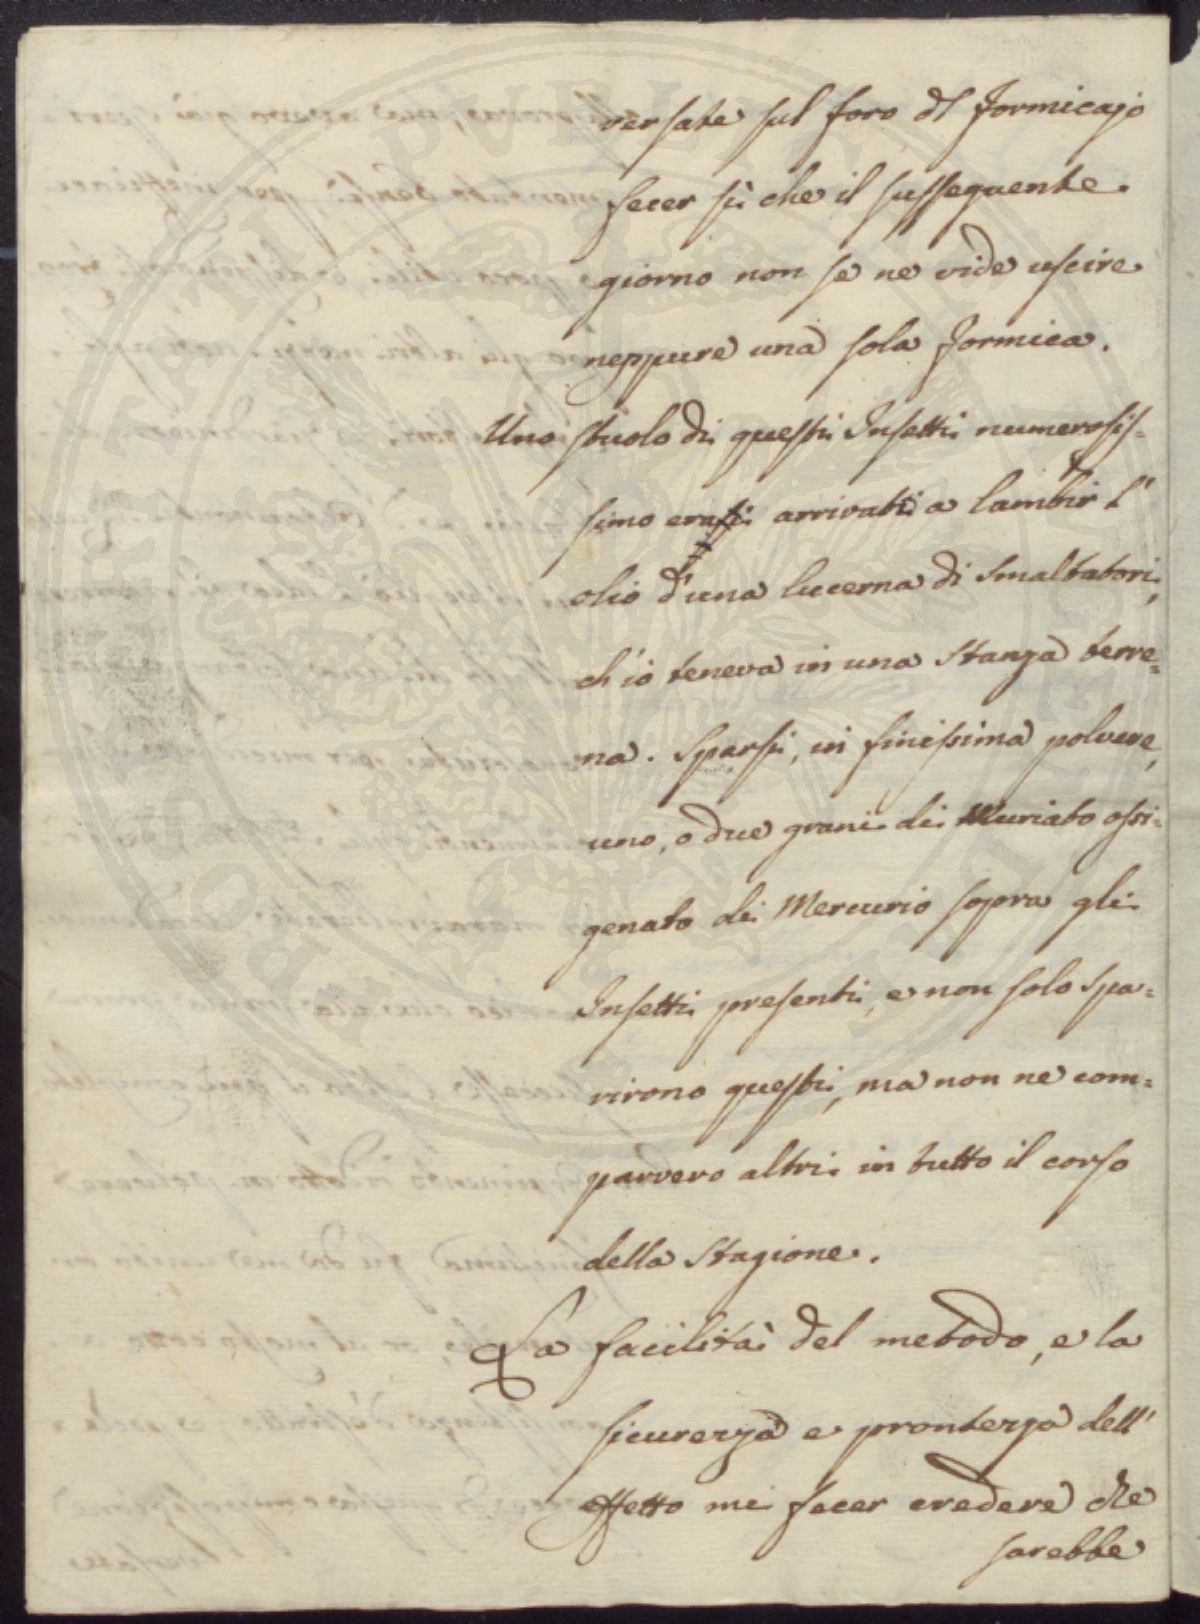 versate sul foro dl Formicajo
fecer sì che il susseguente
giorno non se ne vide uscire
neppure una sola formica.
Uno stuolo di questi Insetti numerosis=
simo erasi arrivato a lambir l'
olio d'una lucerna di Smaltatori,
ch'io teneva in una Stanza terre=
na. Sparsi, in finissima polvere,
uno, o due grani di Muriato ossi=
genato di Mercurio sopra gli
Insetti presenti, e non solo spa=
rirono questi, ma non ne com=
parvero altri in tutto il corso
della Stagione.
La facilità del metodo, e la
sicurezza e prontezza dell'
effetto mi fecer credere che
sarebbe